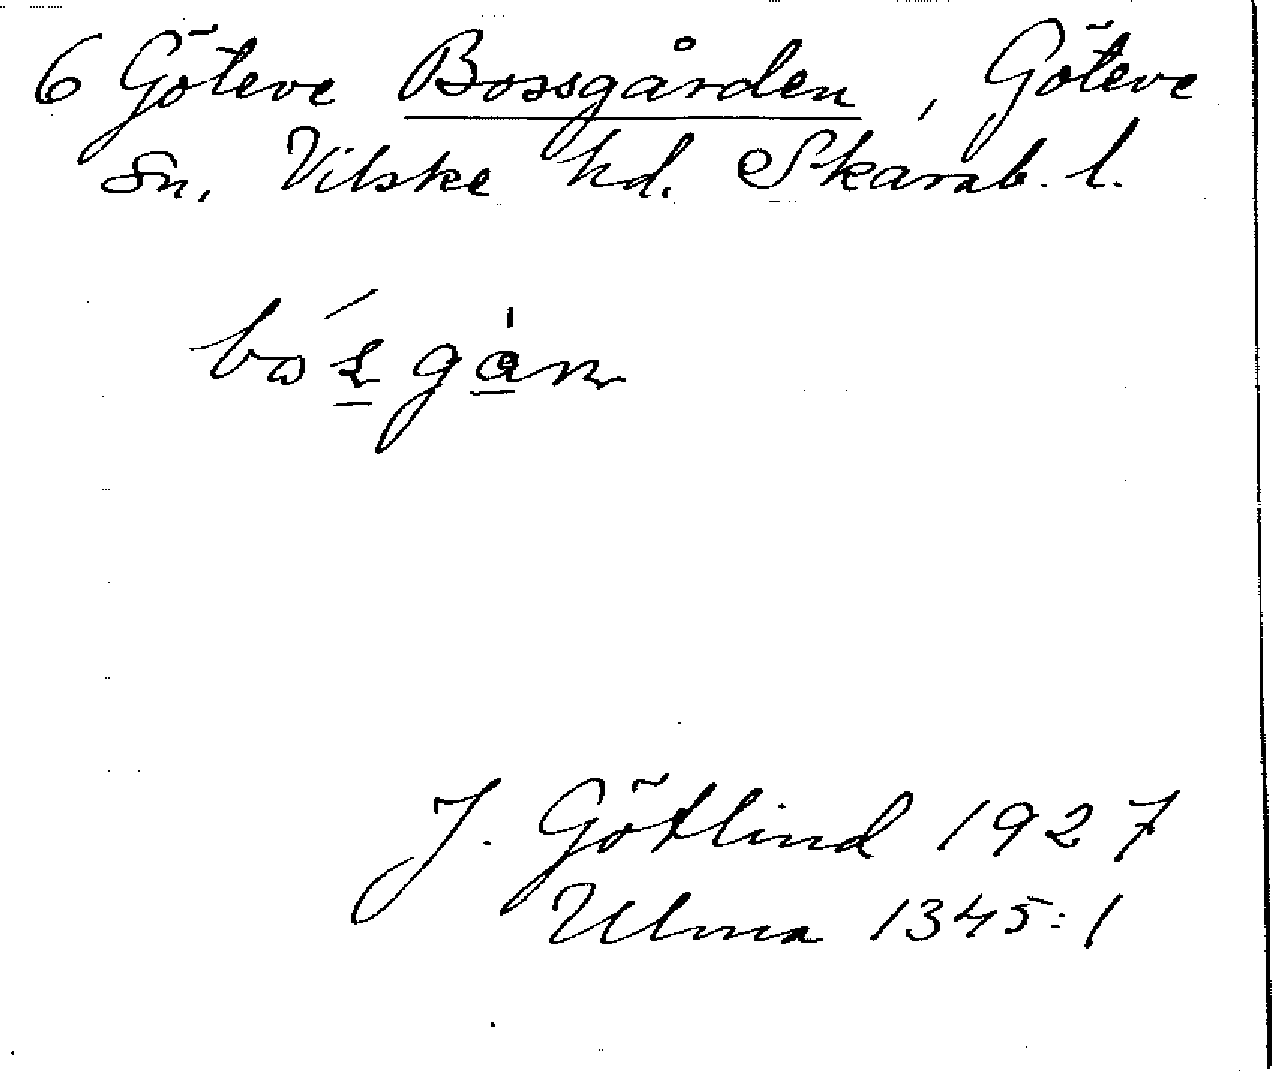 6 Göteve Bossgården, Göteve
Sn. Vilske hd. Skarab. l.
J. Götlind 1927
Ulma 1345:1